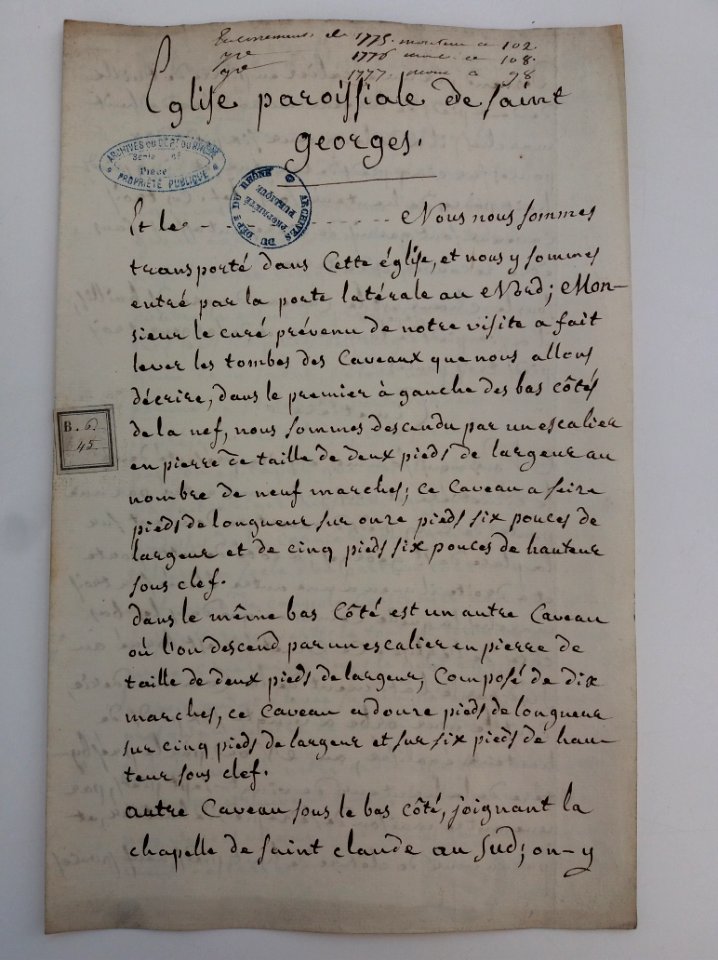 Enterrements de 1775. montent a 102.
1776 108.
1777. 98
Eglise paroissiale de saint
georges.
ARCHIVES DU DEPT DU RHÔNE
Série
Pièce
PROPRIÉTÉ PUBLIQUE
ARCHIVES DU DÉPT DU RHÔNE
PROPRIÉTÉ PUBLIQUE
Et le - - - - - - - Nous nous sommes
transporté dans Cette église, et nous y sommes
entré par la porte latérale au Nord; Mon-
sieur le curé prévenu de notre visite a fait
lever les tombes des Caveaux que nous allons
décrire, dans le premier à gauche des bas côtés
de la nef, nous sommes descendu par un escalier
en pierre de taille de deux pieds de largeur au
nombre de neuf marches; ce Caveau a seize
pieds de longueur sur onze pieds six pouces de
largeur et de cinq pieds six pouces de hauteur
sous clef.
dans le même bas Côté est un autre Caveau
où l'on descend par un escalier en pierre de
taille de deux pieds de largeur, Composé de dix
marches, ce Caveau a douze pieds de longueur
sur cinq pieds de largeur et sur six pieds de hau-
teur sous clef.
autre Caveau sous le bas côté, joignant la
chapelle de saint claude au sud; on-y
B. 6.
45